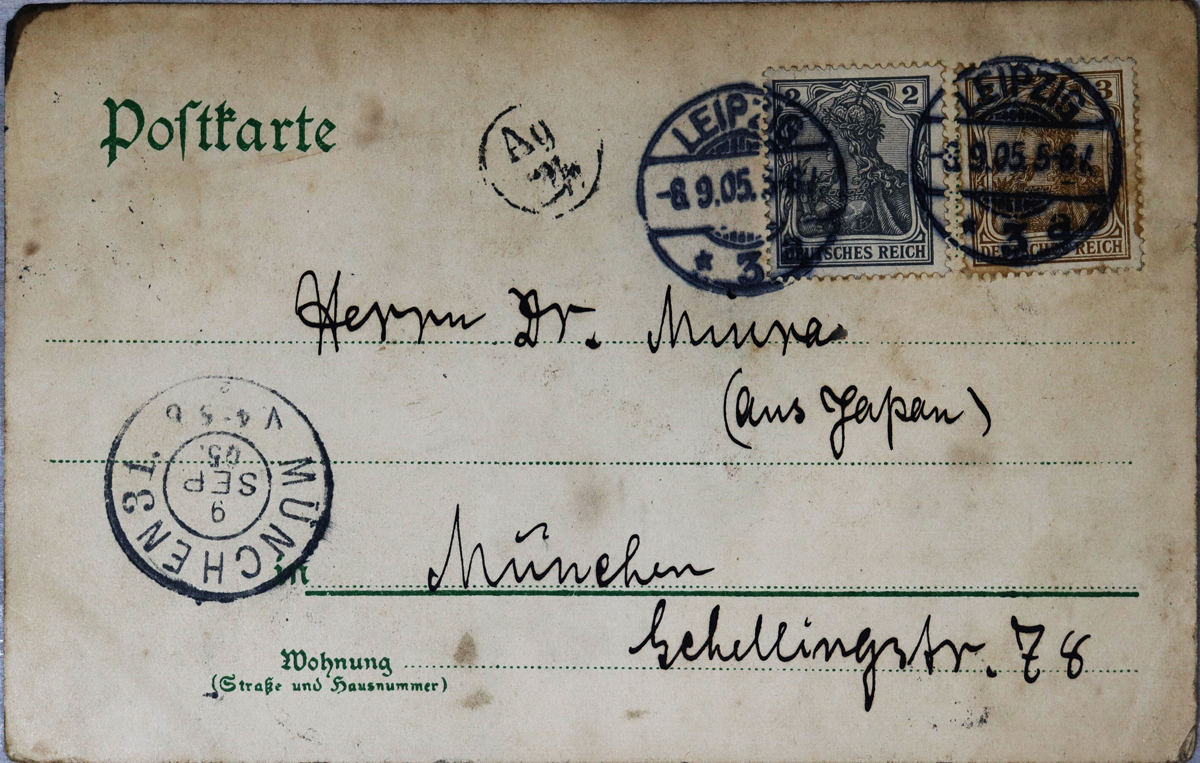 Poſtkarte
Ag
LEIPZIG
-8.9.05. 5-6N.
* 3
2 2
DEUTSCHES REICH
LEIPZIG
-8.9.05. 5-6N.
* 3 a
3
DEUTSCHES REICH
Herrn Dr. Miura
(aus Japan)
MÜNCHEN 31.
9
SEP
05.
V. 4-5
in München
Schellingstr. 78
Wohnung
(Straße und Hausnummer)